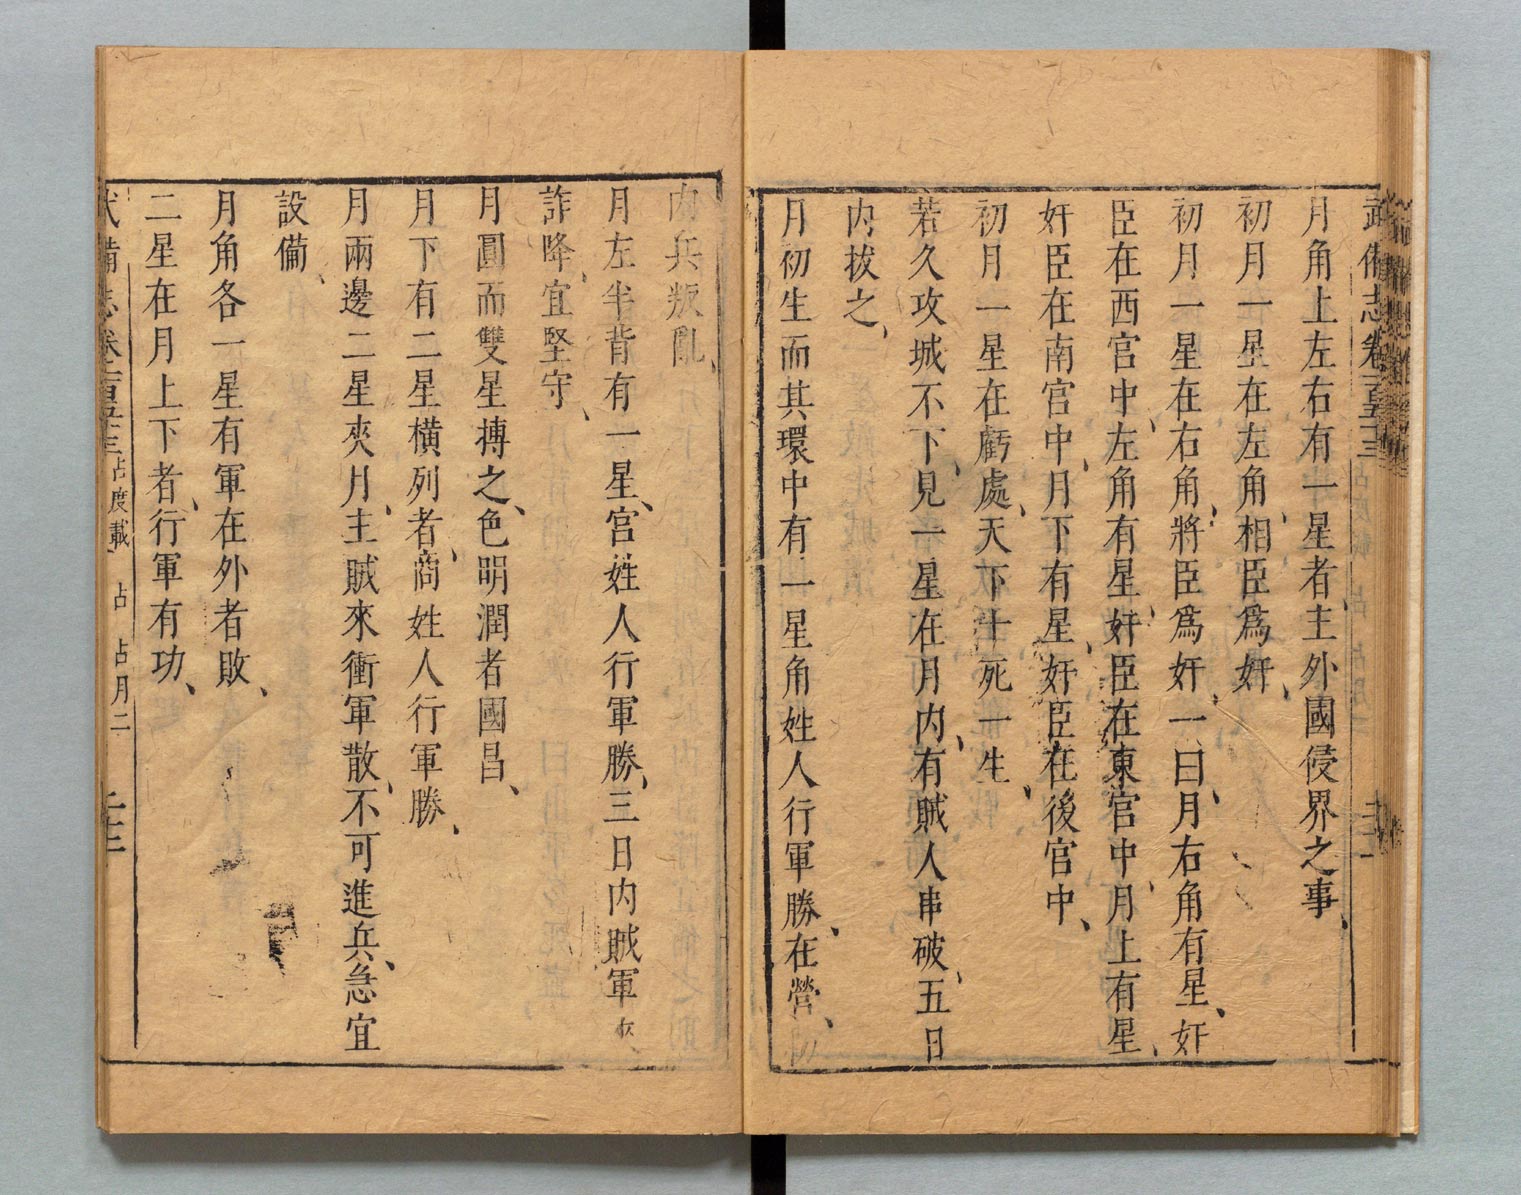 武備志卷一百五十三 占度載 占 占月二
月角上左右有一星者主外國侵界之事、
初月一星在左角、相臣爲奸、
初月一星在右角、將臣爲奸、一曰、月右角有星、奸
臣在西宮中、左角有星、奸臣在東宮中、月上有星、
奸臣在南宮中、月下有星、奸臣在後宮中、
初月一星在虧處、天下十死一生、
若久攻城不下、見一星在月内、有賊人串破、五日
内拔之、
月初生而其環中有一星角姓人行軍勝、在營、
内兵叛亂、
月左半背有一星、宮姓人行軍勝、三日内賊軍
詐降、宜堅守、
月圓而雙星摶之、色明潤者國昌、
月下有二星橫列者、商姓人行軍勝、
月兩邊二星夾月、主賊來衝軍散、不可進兵、急宜
設備、
月角各一星有軍在外者敗、
二星在月上下者、行軍有功、
武備志卷一百五十三 占度載 占 占月二